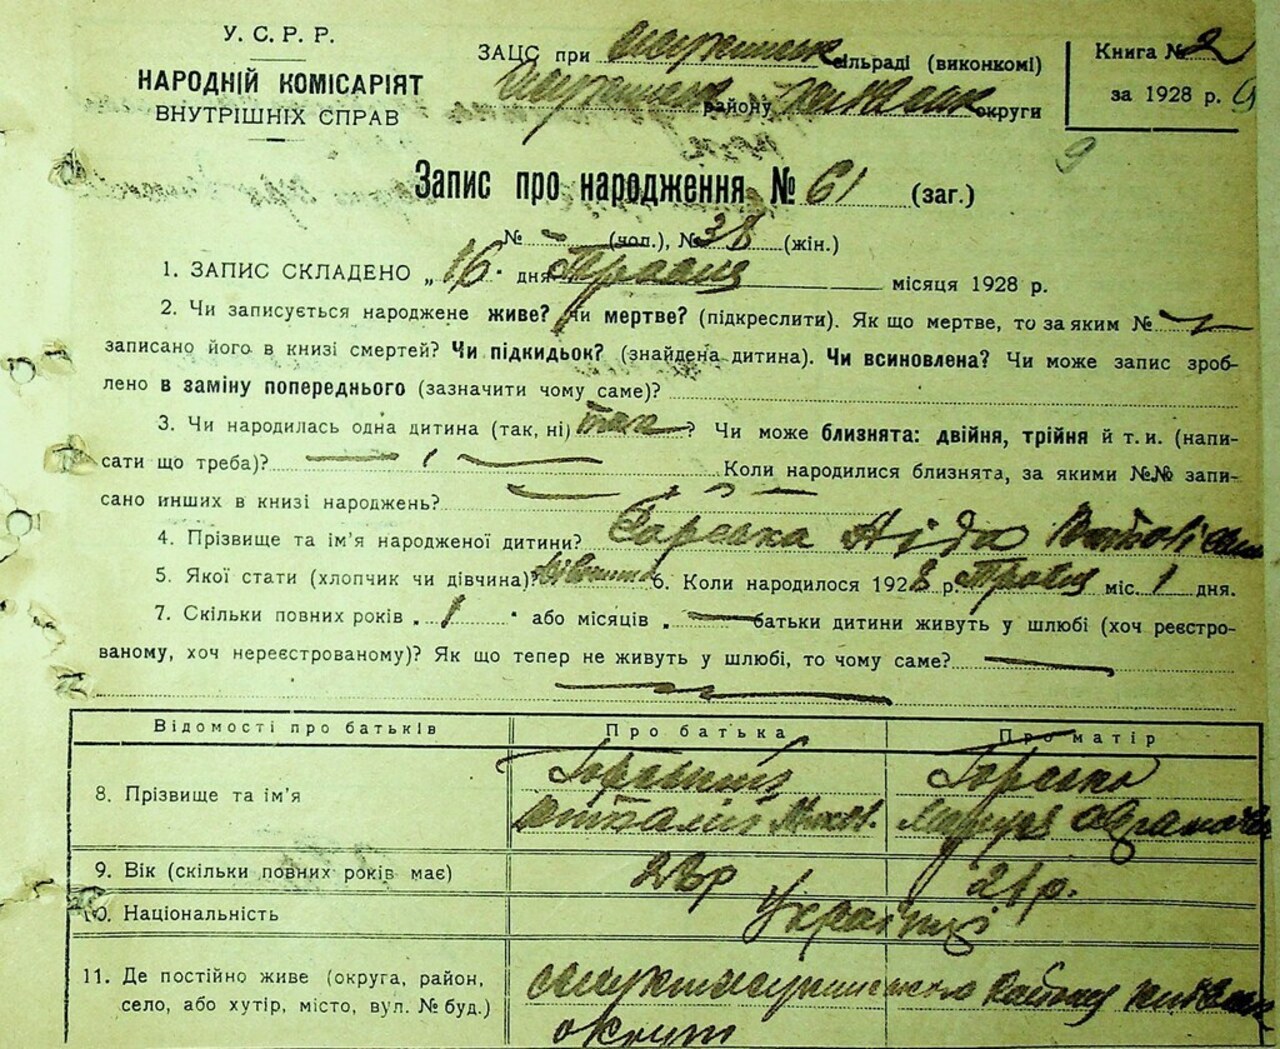 У. С. Р. Р.
НАРОДНІЙ КОМІСАРІЯТ
ВНУТРІШНІХ СПРАВ
ЗАЦС при сільраді (виконкомі)
району округи
Книга № 2
за 1928 р.
9
Запис про народження № 61 (заг.)
№ (чол.), № 38 (жін.)
1. ЗАПИС СКЛАДЕНО „16" дня Травня місяця 1928 р.
2. Чи записується народжене живе? Чи мертве? (підкреслити). Як що мертве, то за яким №
записано його в книзі смертей? Чи підкидьок? (знайдена дитина). Чи всиновлена? Чи може запис зроб-
лено в заміну попереднього (зазначити чому саме)?
3. Чи народилась одна дитина (так, ні) так? Чи може близнята: двійня, трійня й т. и. (напи-
сати що треба)? Коли народилися близнята, за якими №№ запи-
сано инших в книзі народжень?
4. Прізвище та ім'я народженої дитини?
5. Якої стати (хлопчик чи дівчина)? дівчина 6. Коли народилося 1928 р. Травня міс. 1 дня.
7. Скільки повних років „1" або місяців „ батьки дитини живуть у шлюбі (хоч реєстро-
ваному, хоч нереєстрованому)? Як що тепер не живуть у шлюбі, то чому саме?
Відомості про батьків Про батька Про матір
8. Прізвище та ім'я
9. Вік (скільки повних років має) 23р 21р.
10. Національність Українці
11. Де постійно живе (округа, район,
село, або хутір, місто, вул. № буд.) району
округи